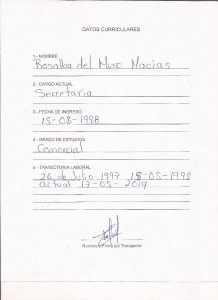 DATOS CURRICULARES
1.- NOMBRE
Rosalba del Muro Macias
2.- CARGO ACTUAL
Secretaria
3.- FECHA DE INGRESO
15-08-1998
4.- GRADO DE ESTUDIOS
Comercial
5.- TRAYECTORIA LABORAL
26 de Julio 1997 18-05-1998
actual 17-05-2017
Nombre y Firma del Trabajador